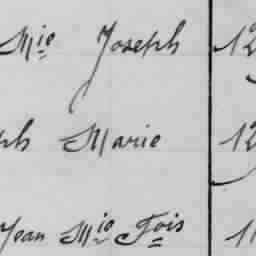 Mie Joseph 12
ph Marie 12
Jean Mie Fois 11